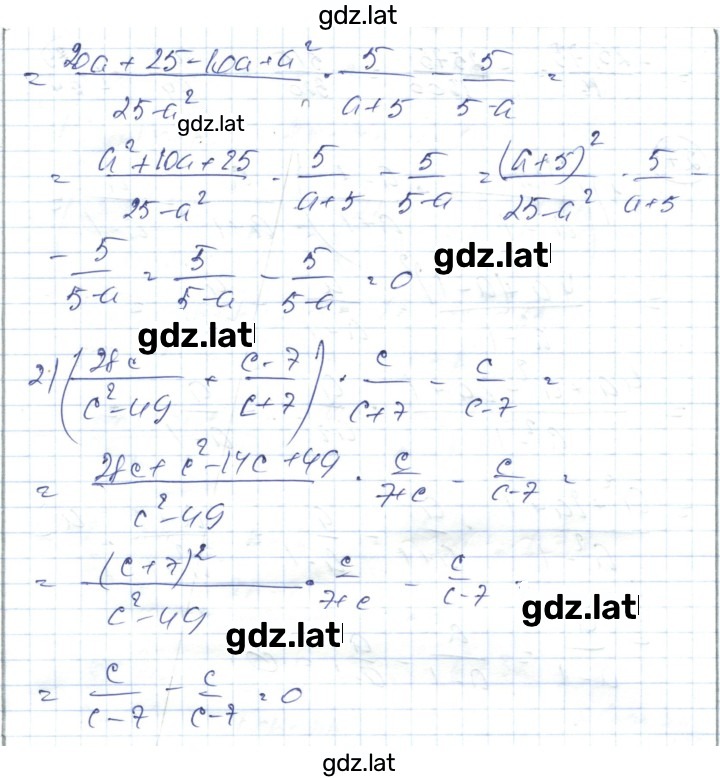 gdz.lat
= (20a + 25 - 10a + a²)/(25 - a²) · 5/(a + 5) - 5/(5 - a) =
gdz.lat
= (a² + 10a + 25)/(25 - a²) · 5/(a + 5) - 5/(5 - a) = (a + 5)²/(25 - a²) · 5/(a + 5) -
- 5/(5 - a) = 5/(5 - a) - 5/(5 - a) = 0
gdz.lat
gdz.lat
2) (28c/(c² - 49) + (c - 7)/(c + 7)) · c/(c + 7) - c/(c - 7) =
= (28c + c² - 14c + 49)/(c² - 49) · c/(7 + c) - c/(c - 7) =
= (c + 7)²/(c² - 49) · c/(7 + c) - c/(c - 7) =
gdz.lat
gdz.lat
= c/(c - 7) - c/(c - 7) = 0
gdz.lat